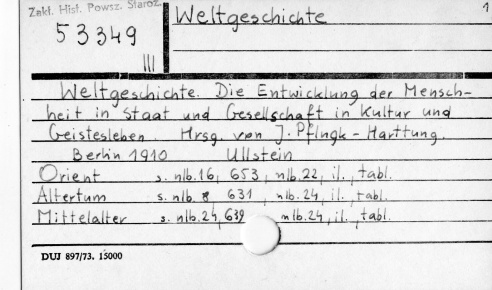 Zakł. Hist. Powsz. Staroż.
Weltgeschichte
1
53349
III
Weltgeschichte. Die Entwicklung der Mensch-
heit in Staat und Gesellschaft in Kultur und
Geistesleben. Hrsg. von J. Pflngk-Harttung.
Berlin 1910 Ullstein
Orient s. nlb.16, 653, nlb.22, il., tabl.
Altertum s. nlb. 8 631, nlb.24, il., tabl.
Mittelalter s. nlb.24, 639 nlb.24, il., tabl.
DUJ 897/73. 15000